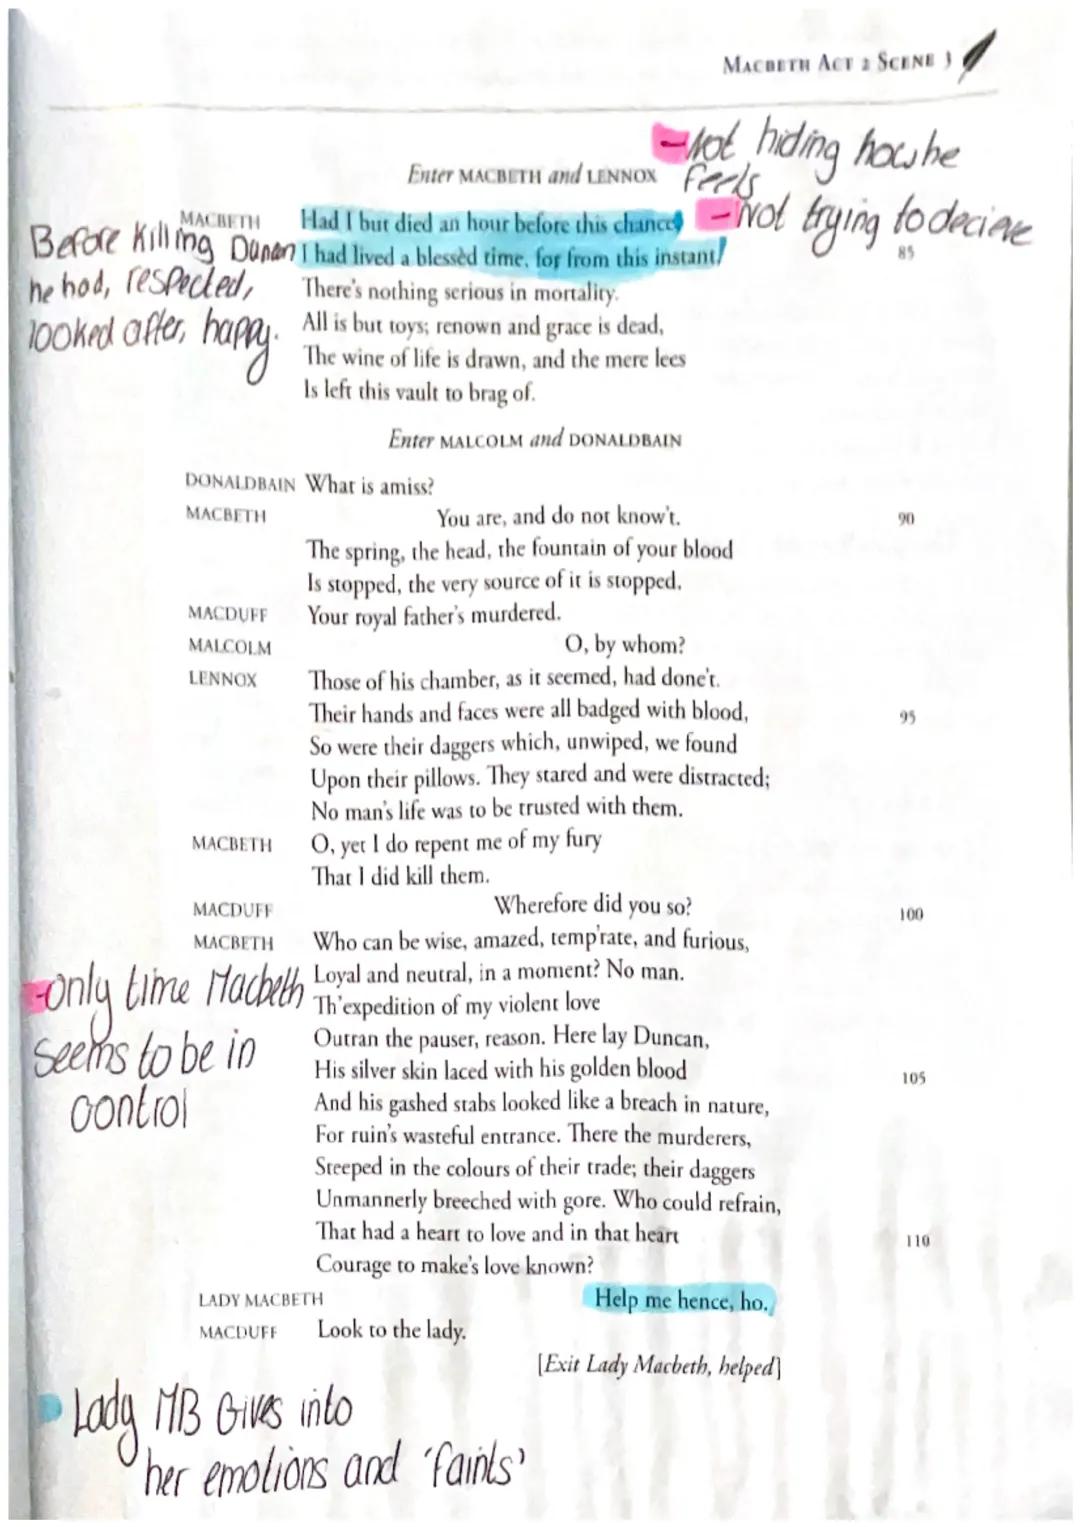 MACBETH ACT 2 SCENE 3
-Not hiding how he
feels
-Not trying to decieve
Enter MACBETH and LENNOX
Before Killing Dunan
he had, respected,
looked after, happy.
MACBETH Had I but died an hour before this chance,
I had lived a blessèd time, for from this instant, 85
There's nothing serious in mortality.
All is but toys; renown and grace is dead,
The wine of life is drawn, and the mere lees
Is left this vault to brag of.
Enter MALCOLM and DONALDBAIN
DONALDBAIN What is amiss?
MACBETH You are, and do not know't. 90
The spring, the head, the fountain of your blood
Is stopped, the very source of it is stopped.
MACDUFF Your royal father's murdered.
MALCOLM O, by whom?
LENNOX Those of his chamber, as it seemed, had done't.
Their hands and faces were all badged with blood, 95
So were their daggers which, unwiped, we found
Upon their pillows. They stared and were distracted;
No man's life was to be trusted with them.
MACBETH O, yet I do repent me of my fury
That I did kill them.
MACDUFF Wherefore did you so? 100
MACBETH Who can be wise, amazed, temp'rate, and furious,
Loyal and neutral, in a moment? No man.
Th'expedition of my violent love
Outran the pauser, reason. Here lay Duncan,
His silver skin laced with his golden blood 105
And his gashed stabs looked like a breach in nature,
For ruin's wasteful entrance. There the murderers,
Steeped in the colours of their trade; their daggers
Unmannerly breeched with gore. Who could refrain,
That had a heart to love and in that heart 110
Courage to make's love known?
-only time Macbeth
seems to be in
control
LADY MACBETH Help me hence, ho.
MACDUFF Look to the lady.
[Exit Lady Macbeth, helped]
Lady MB Gives into
her emotions and 'faints'